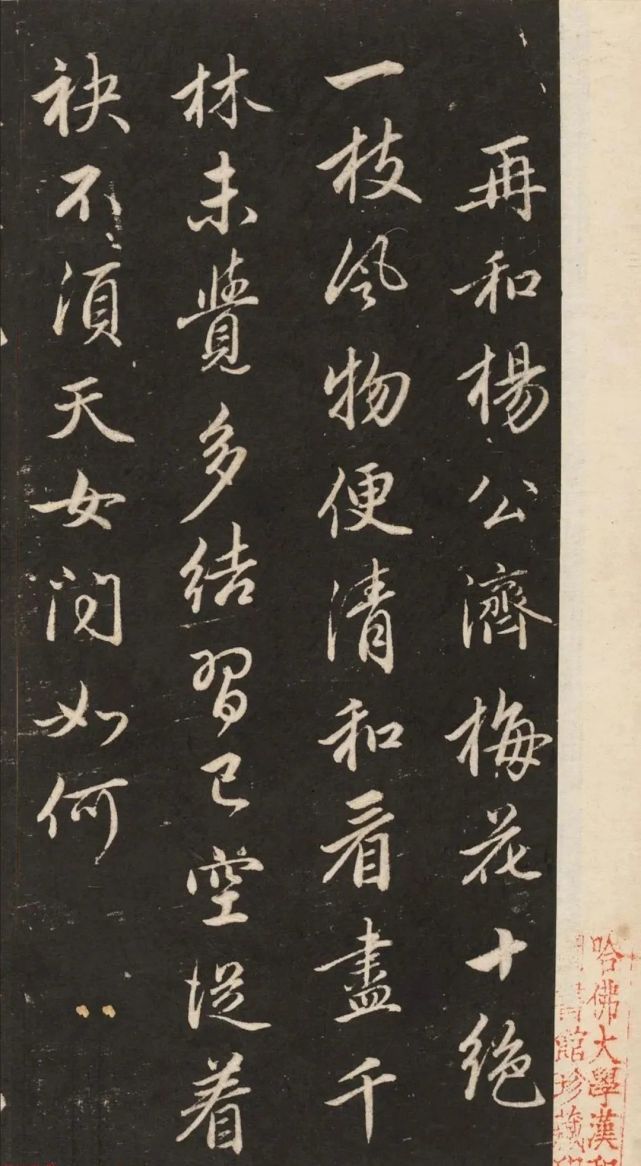 再和楊公濟梅花十絕
一枝風物便清和看盡千
林未覺多結習已空從着
袂不須天女問如何
哈佛大學漢和
圖書館珍藏印